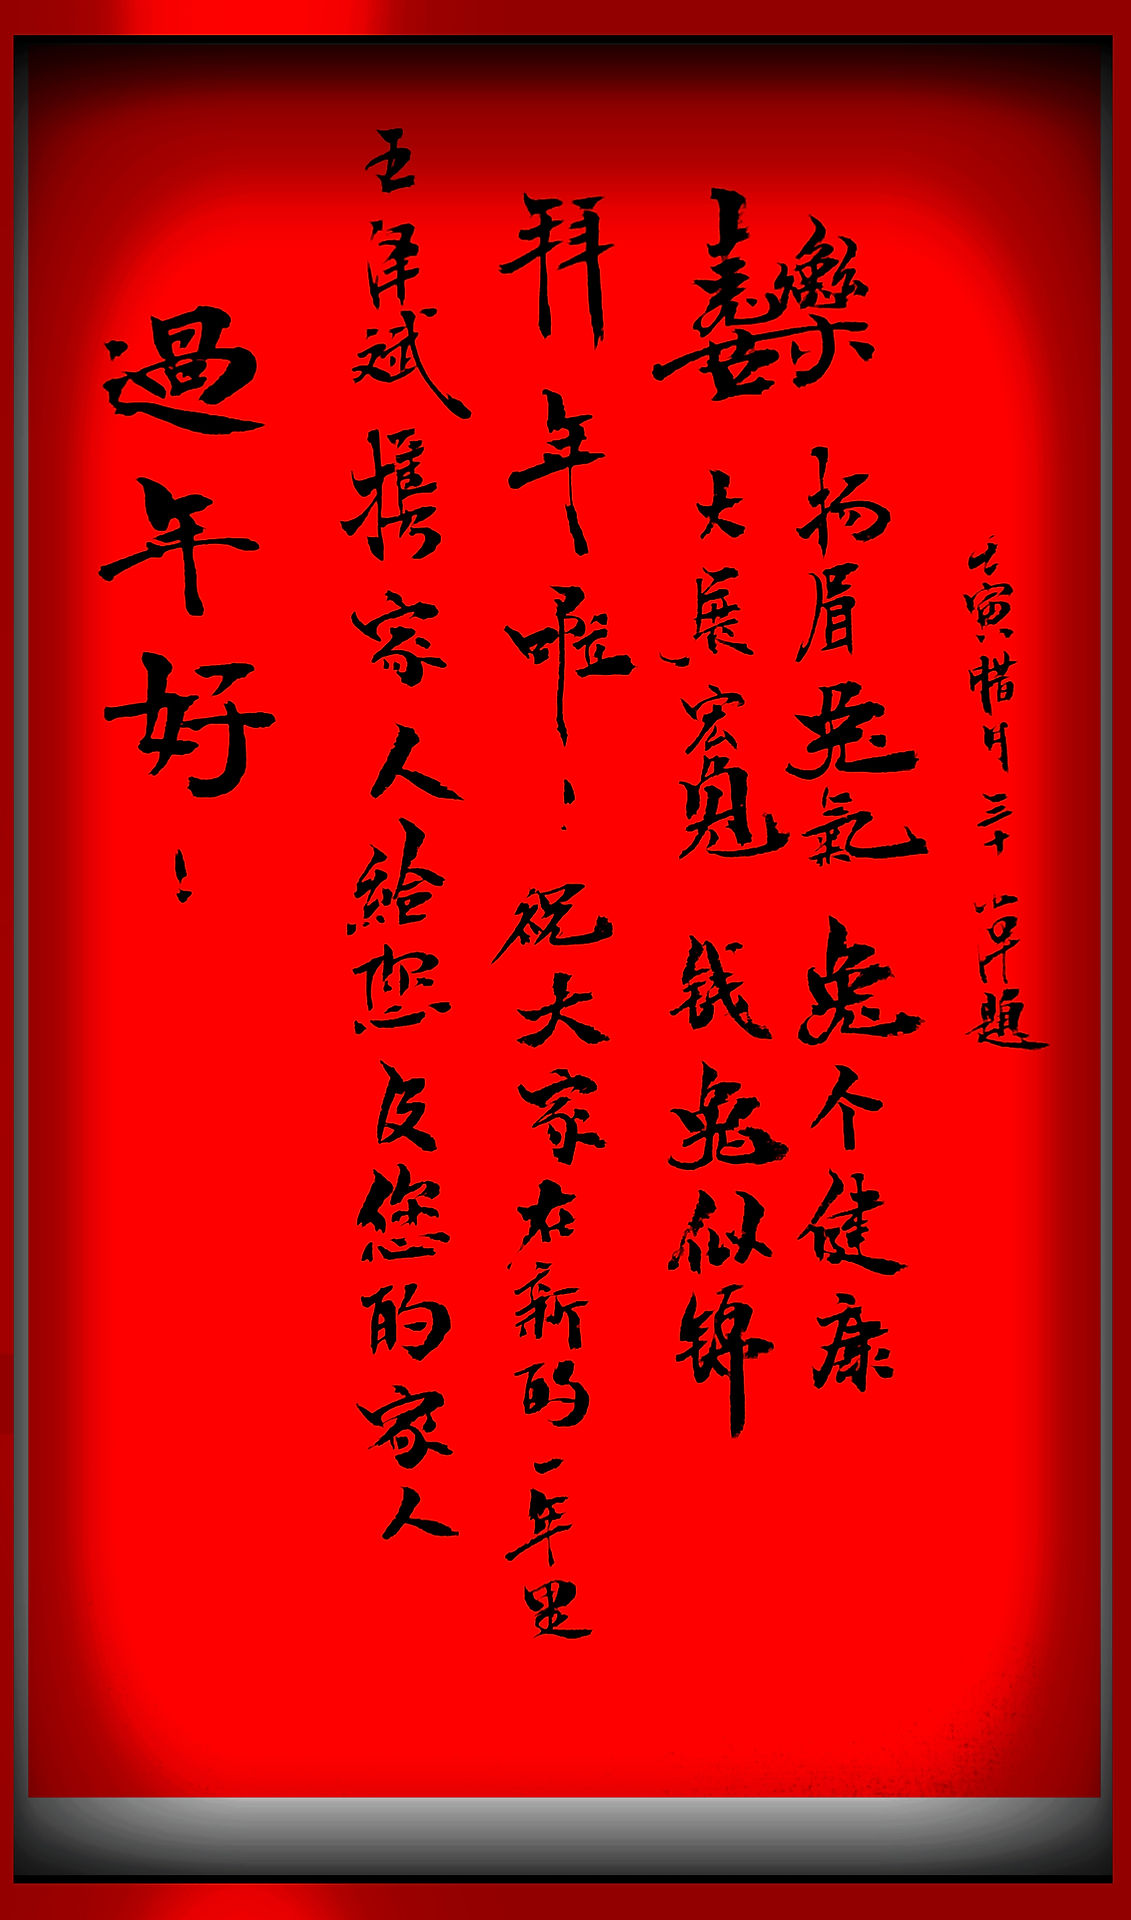 過年好！
王泽斌携家人給您及您的家人
拜年啦！祝大家在新的一年里
大展宏兔 钱兔似锦
扬眉兔氣 兔个健康
壬寅腊月三十 題